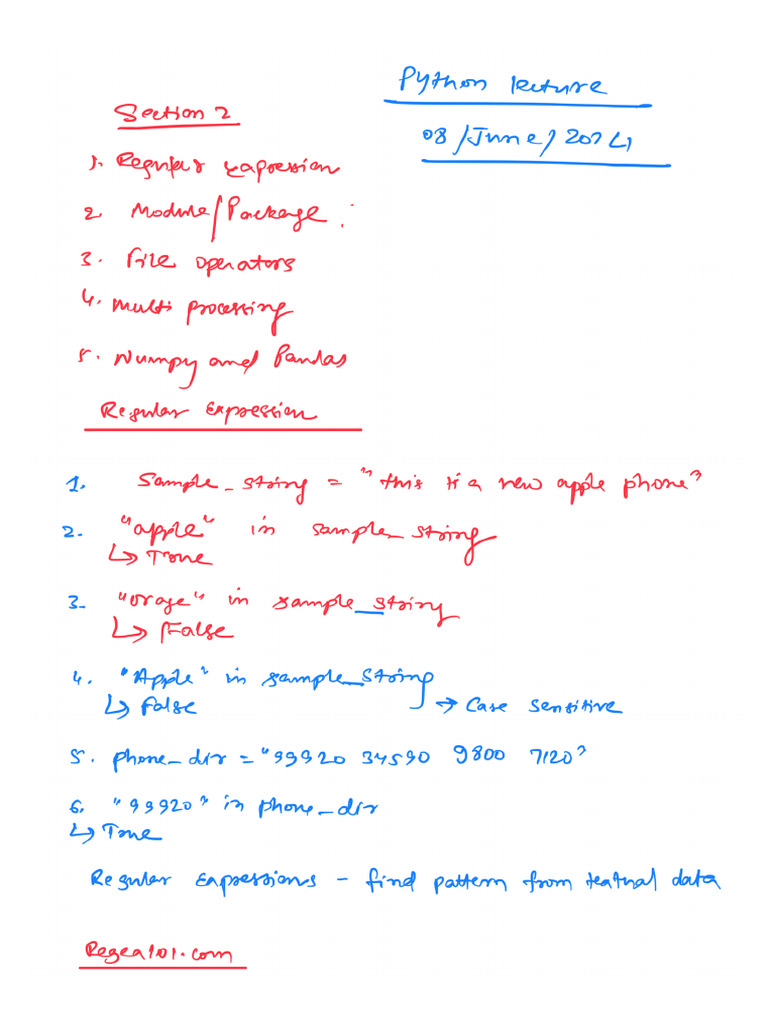 Python lecture
08/June/2024
Section 2
1. Regular Expression
2. Module/Package :
3. File operators
4. Multi processing
5. Numpy and Pandas
Regular Expression
1. Sample_string = "this is a new apple phone"
2. "apple" in sample_string
↳ True
3. "orage" in sample_string
↳ False
4. "Apple" in sample_string
↳ False → Case Sensitive
5. phone_dir = "99920 34590 9800 7120"
6. "99920" in phone_dir
↳ True
Regular Expressions - find pattern from textual data
Regex101.com